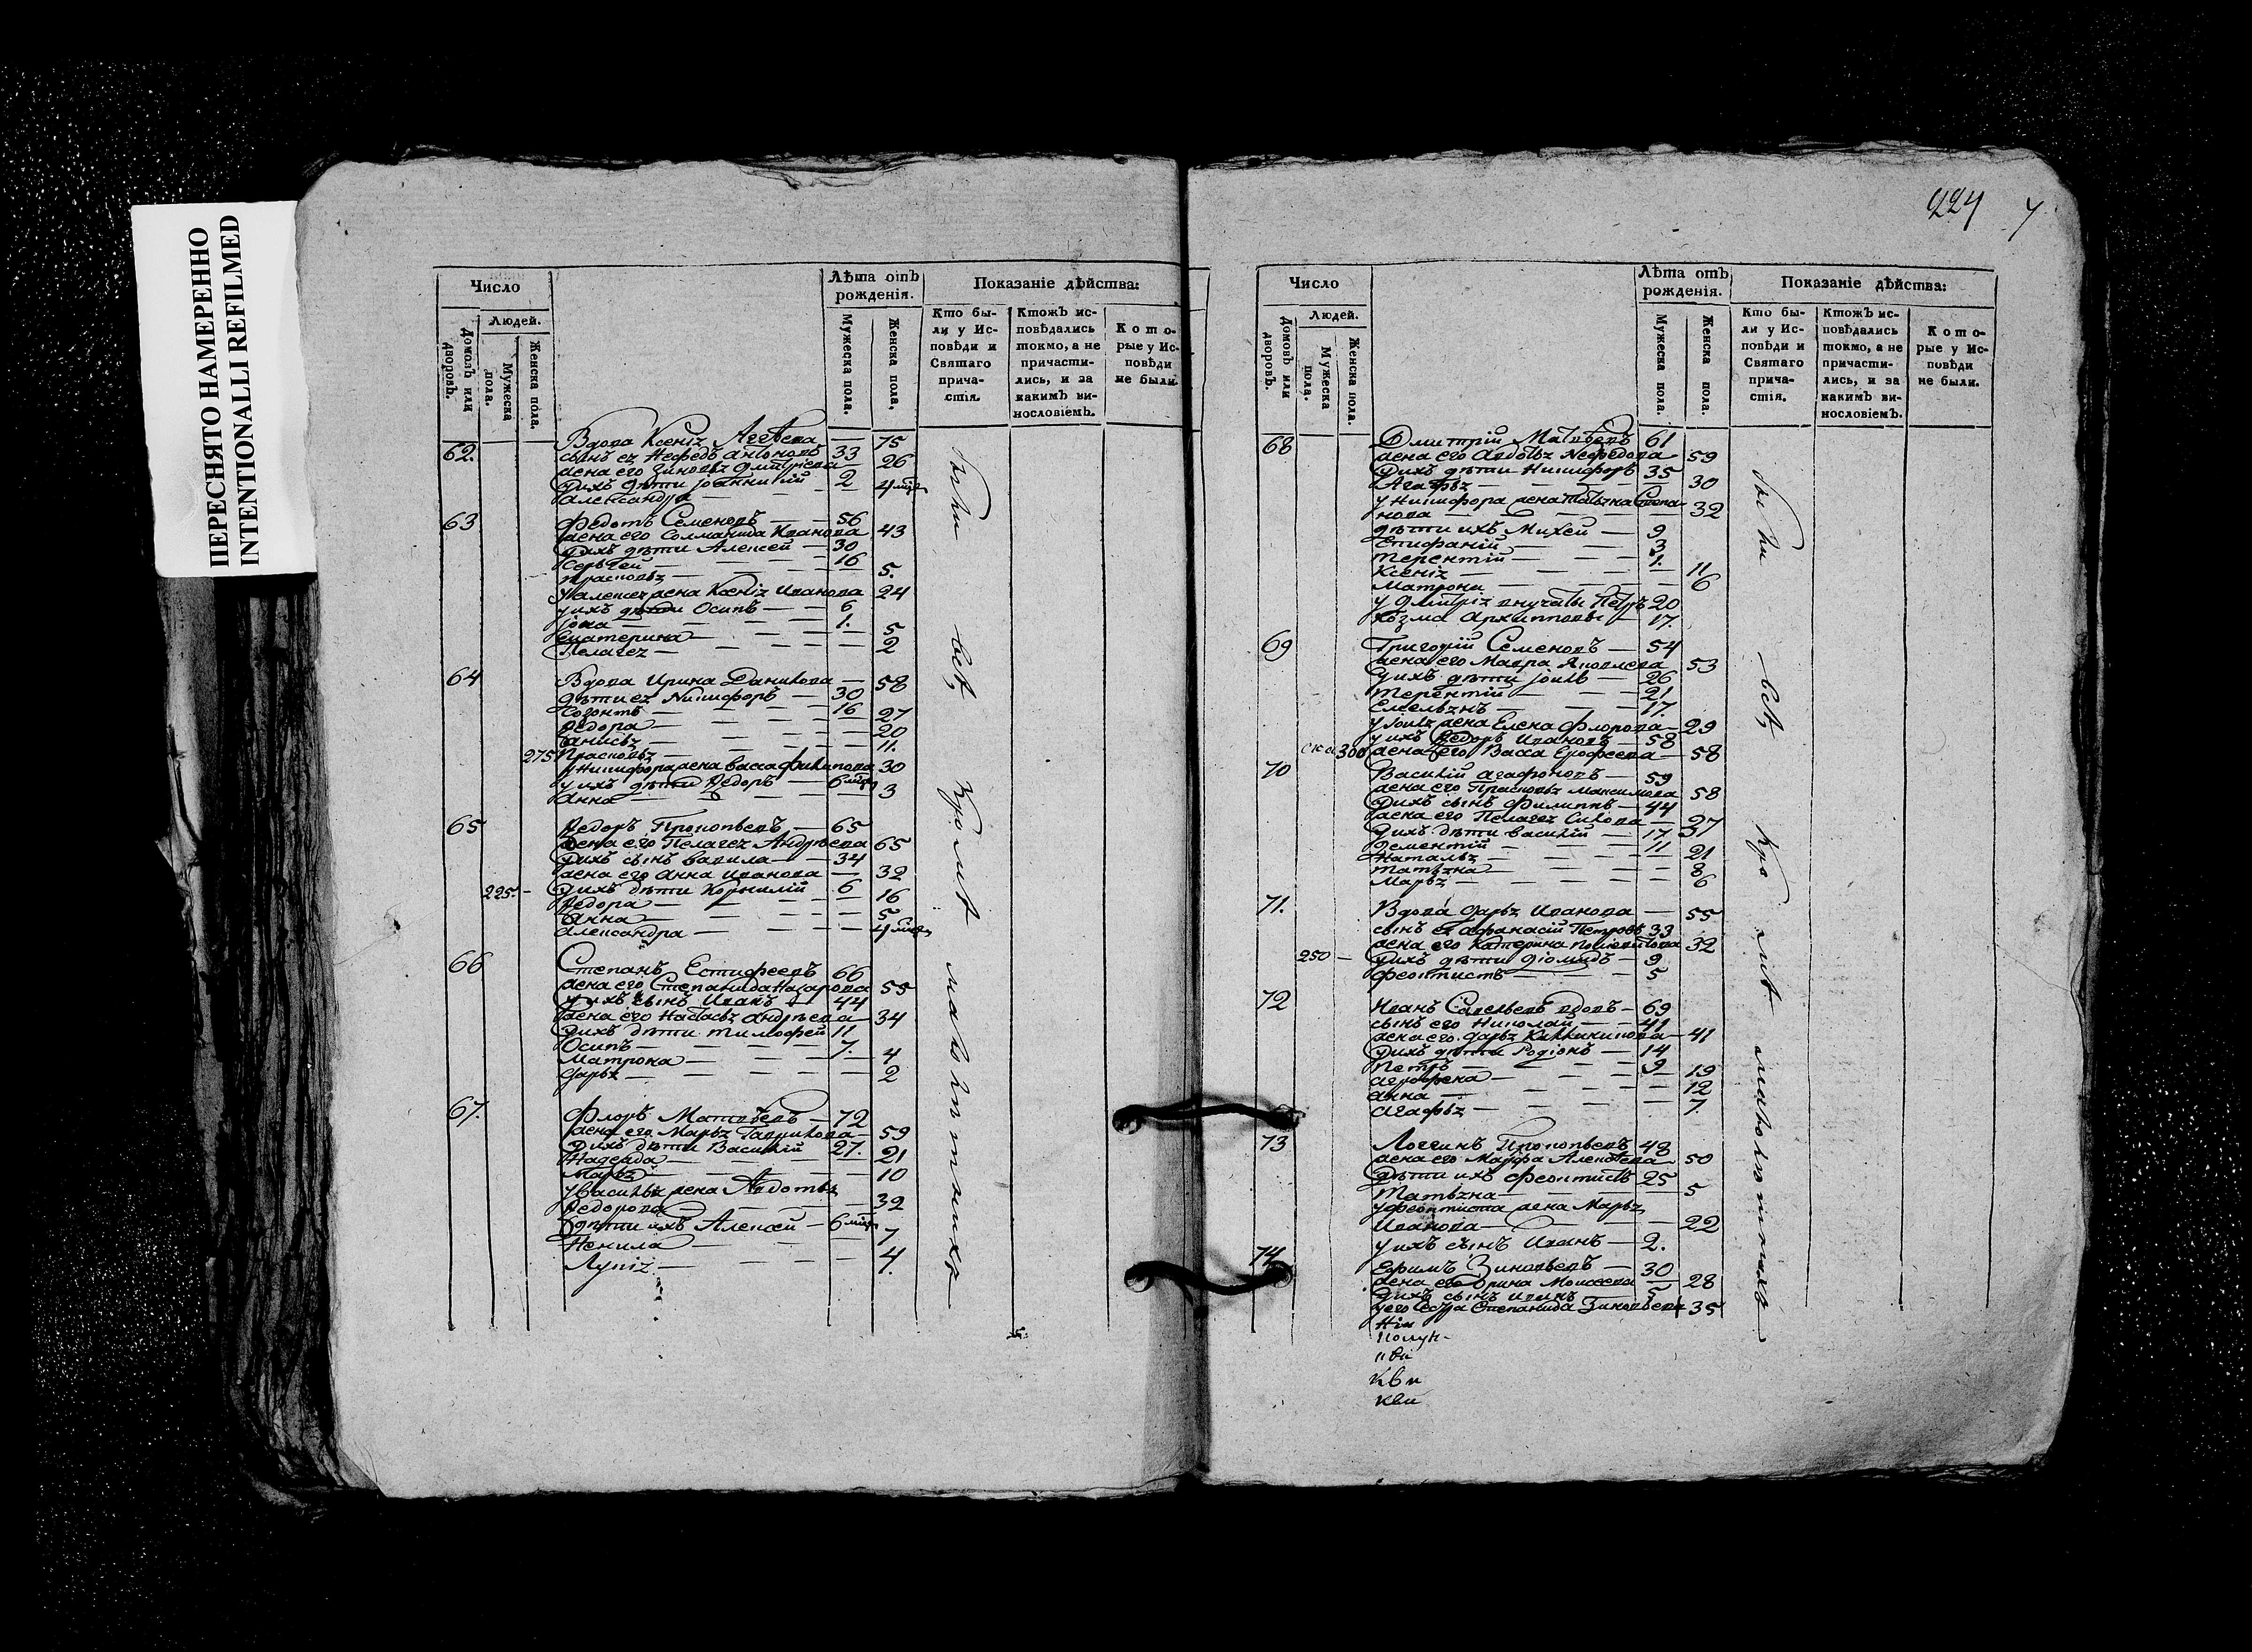 ПЕРЕСНЯТО НАМЕРЕННО
INTENTIONALLI REFILMED
Число
Людей.
Домовъ или дворовъ.
Мужеска пола.
Женска пола.
Лѣта отъ рожденія.
Мужеска пола.
Женска пола.
Показаніе дѣйства:
Кто были у Исповѣди и Святаго причастія.
Ктожъ исповѣдались токмо, а не причастились, и за какимъ винословіемъ.
Которые у Исповѣди не были.
62. Вдова Ксенія Агѣева — 75
сынъ ея Нефедъ Антоновъ 33
жена его Зиновья Дмитріева — 26
у ихъ дѣти Іоанникій 2
Александра — 4 мѣс
63 Федотъ Семеновъ — 56
жена его Соломанида Иванова 43
у ихъ дѣти Алексей — 30
Сергѣей — 16
Прасковья — 5.
у Алексея жена Ксенія Иванова 24
у ихъ дѣти Осипъ — 6
Іона — 1.
Екатерина — 5
Пелагея — 2
64 Вдова Ирина Данилова — 58
дѣти ея Никифоръ — 30
Созонтъ — 16
Ѳедора — 27
Анисья — 20
275 Прасковья — 11.
у Никифора жена Васса Филипова 30
у ихъ дѣти Ѳедоръ — 6 мѣс
Анна — 3
65 Ѳедоръ Прокопьевъ — 65
жена его Пелагея Андрѣева 65
у ихъ сынъ Вавила — 34
жена его Анна Иванова — 32
225. — у ихъ дѣти Корнилій 6
Ѳедора — 16
Анна — 5
Александра — 4 мѣс
66 Степанъ Естифеевъ 66
жена его Степанида Назарова 55
у ихъ сынъ Иванъ 44
жена его Настасья Андрѣева — 34
у ихъ дѣти Тимофей 11.
Осипъ — 7.
Матрона — 4
Дарья — 2
67. Флоръ Матвѣевъ — 72
жена его Марья Гаврилова — 59
у ихъ дѣти Василій 27.
Надежда — 21
Марья — 10
у Василья жена Авдотья
Ѳедорова — 32
дѣти ихъ Алексей — 6 мѣс
Ненила — 7
Лукія — 4.
были всѣ кромѣ малолѣтнихъ
224
Число
Людей.
Домовъ или дворовъ.
Мужеска пола.
Женска пола.
Лѣта отъ рожденія.
Мужеска пола.
Женска пола.
Показаніе дѣйства:
Кто были у Исповѣди и Святаго причастія.
Ктожъ исповѣдались токмо, а не причастились, и за какимъ винословіемъ.
Которые у Исповѣди не были.
68 Дмитрій Матвѣевъ 61
жена его Авдотья Нефедова 59
у ихъ дѣти Никифоръ 35
Агафья — 30
у Никифора жена Татьяна Степа-
нова — 32
дѣти ихъ Михей — 9
Епифаній — 3
Терентій — 1.
Ксенія — 11
Матрона — 6
у Дмитрія внучаты Петръ 20
Козма Архиповы — 17.
69 Григорій Семеновъ — 54
жена его Мавра Яковлева 53
у ихъ дѣти Іоиль — 26
Терентій — 21
Емельянъ — 17.
у Іоиля жена Елена Флорова — 29
у ихъ Ѳедоръ Ивановъ — 58
300 жена его Васса Ерофеева — 58
70 Василій Агафоновъ — 59
жена его Прасковья Максимова 58
у ихъ сынъ Филиппъ — 44
жена его Пелагея Силова — 37
у ихъ дѣти Василій — 17
Дементій — 11
Наталья — 21
Татьяна — 8
Марья — 6
71. Вдова Дарья Иванова — 55
сынъ ея Афанасій Петровъ 33
жена его Катерина 32
250 — у ихъ дѣти Діомидъ — 9
Феоктистъ — 5
72 Иванъ Савельевъ вдовъ — 69
сынъ его Николай — 41
жена его Дарья 41
у ихъ дѣти Родіонъ — 14
Петръ — 9
Агрофена — 19
Анна — 12
Агафья — 7
73 Логгинъ Прокопьевъ 48
жена его Марфа Алексѣева 50
дѣти ихъ Феоктистъ 25
Татьяна — 5
у Феоктиста жена Марья
Иванова — 22
у ихъ сынъ Иванъ — 2.
74 Ефимъ Зиновьевъ — 30
жена его Орина Моисеева — 28
у ихъ сынъ Иванъ — 5
у его сестра Степанида Зиновьева 35
были всѣ кромѣ малолѣтнихъ